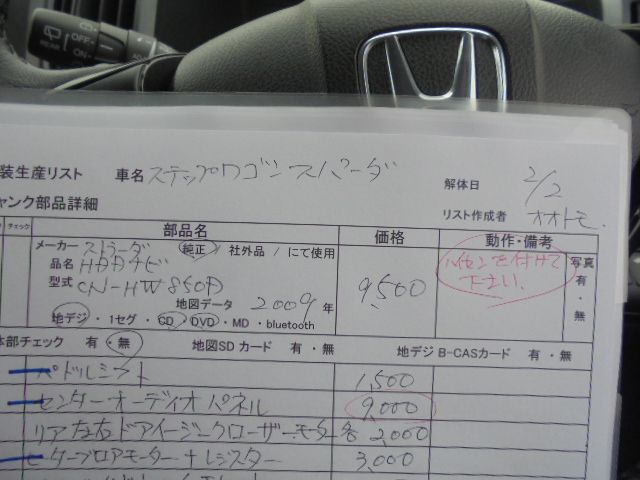 OFF
REAR
ON
装生産リスト 車名 ステップワゴン スパーダ 解体日 2/2
リスト作成者 オオトモ
ャンク部品詳細
チェック 部品名 価格 動作・備考 写真
メーカー ストラーダ 純正 / 社外品 / にて使用
品名 HDDナビ
型式 CN-HW850D
地図データ 2009 年
9,500
ハイセンを付けて
下さい。
有・無
地デジ ・1セグ・CD・DVD・MD・bluetooth
本部チェック 有・無 地図SDカード 有・無 地デジB-CASカード 有・無
パドルシフト 1,500
センターオーディオパネル 9,000
リア左右ドアイージークローザーモーター 各 2,000
ヒーターブロアモーター+レジスター 3,000